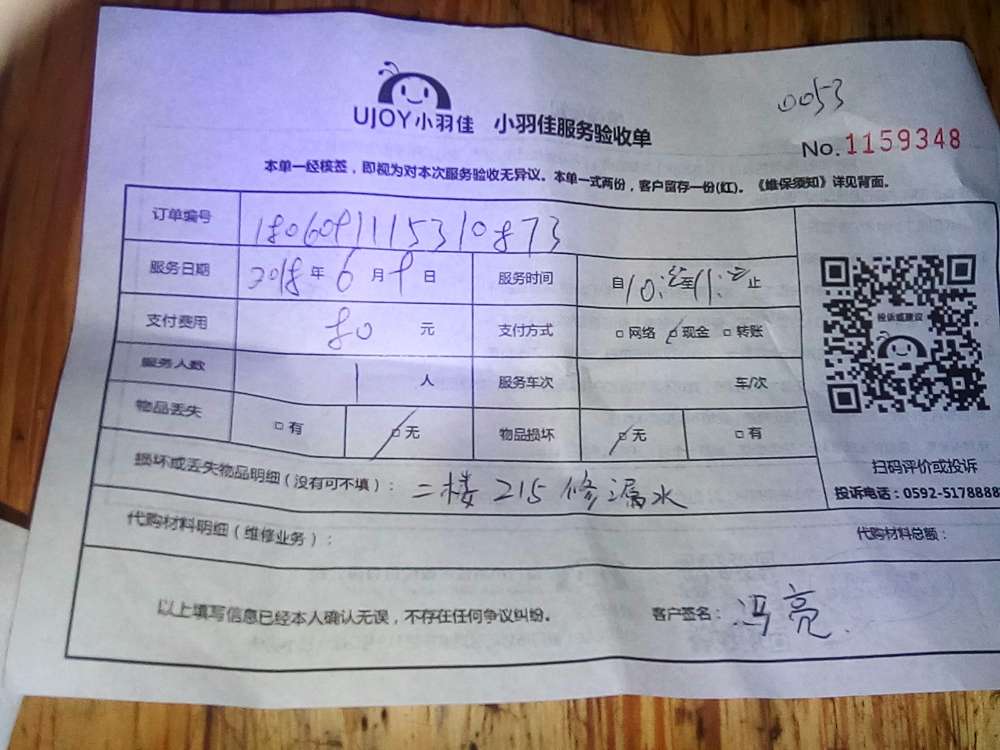 0053
UJOY小羽佳 小羽佳服务验收单
No.1159348
本单一经核签，即视为对本次服务验收无异议。本单一式两份，客户留存一份(红)。《维保须知》详见背面。
订单编号 1806091115310873
服务日期 2018年6月9日 服务时间 自10: 至11: 止
支付费用 80元 支付方式 □网络 □现金 □转账
服务人数 1人 服务车次 车/次
物品丢失 □有 □无 物品损坏 □无 □有
投诉或建议
扫码评价或投诉
投诉电话：0592-5178888
损坏或丢失物品明细（没有可不填）：二楼215修漏水
代购材料明细（维修业务）： 代购材料总额：
以上填写信息已经本人确认无误，不存在任何争议纠纷。 客户签名：冯亮